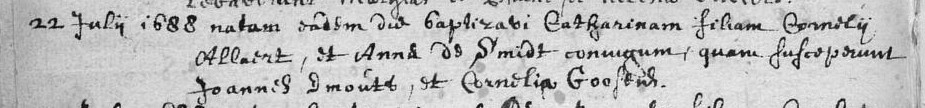 22 Julij 1688 natam eâdem die baptizavi Catharinam filiam Cornelij
Allaert, et Anna de Smidt coniugum, quam susceperunt
Joannes Smouts, et Cornelia Goossens.